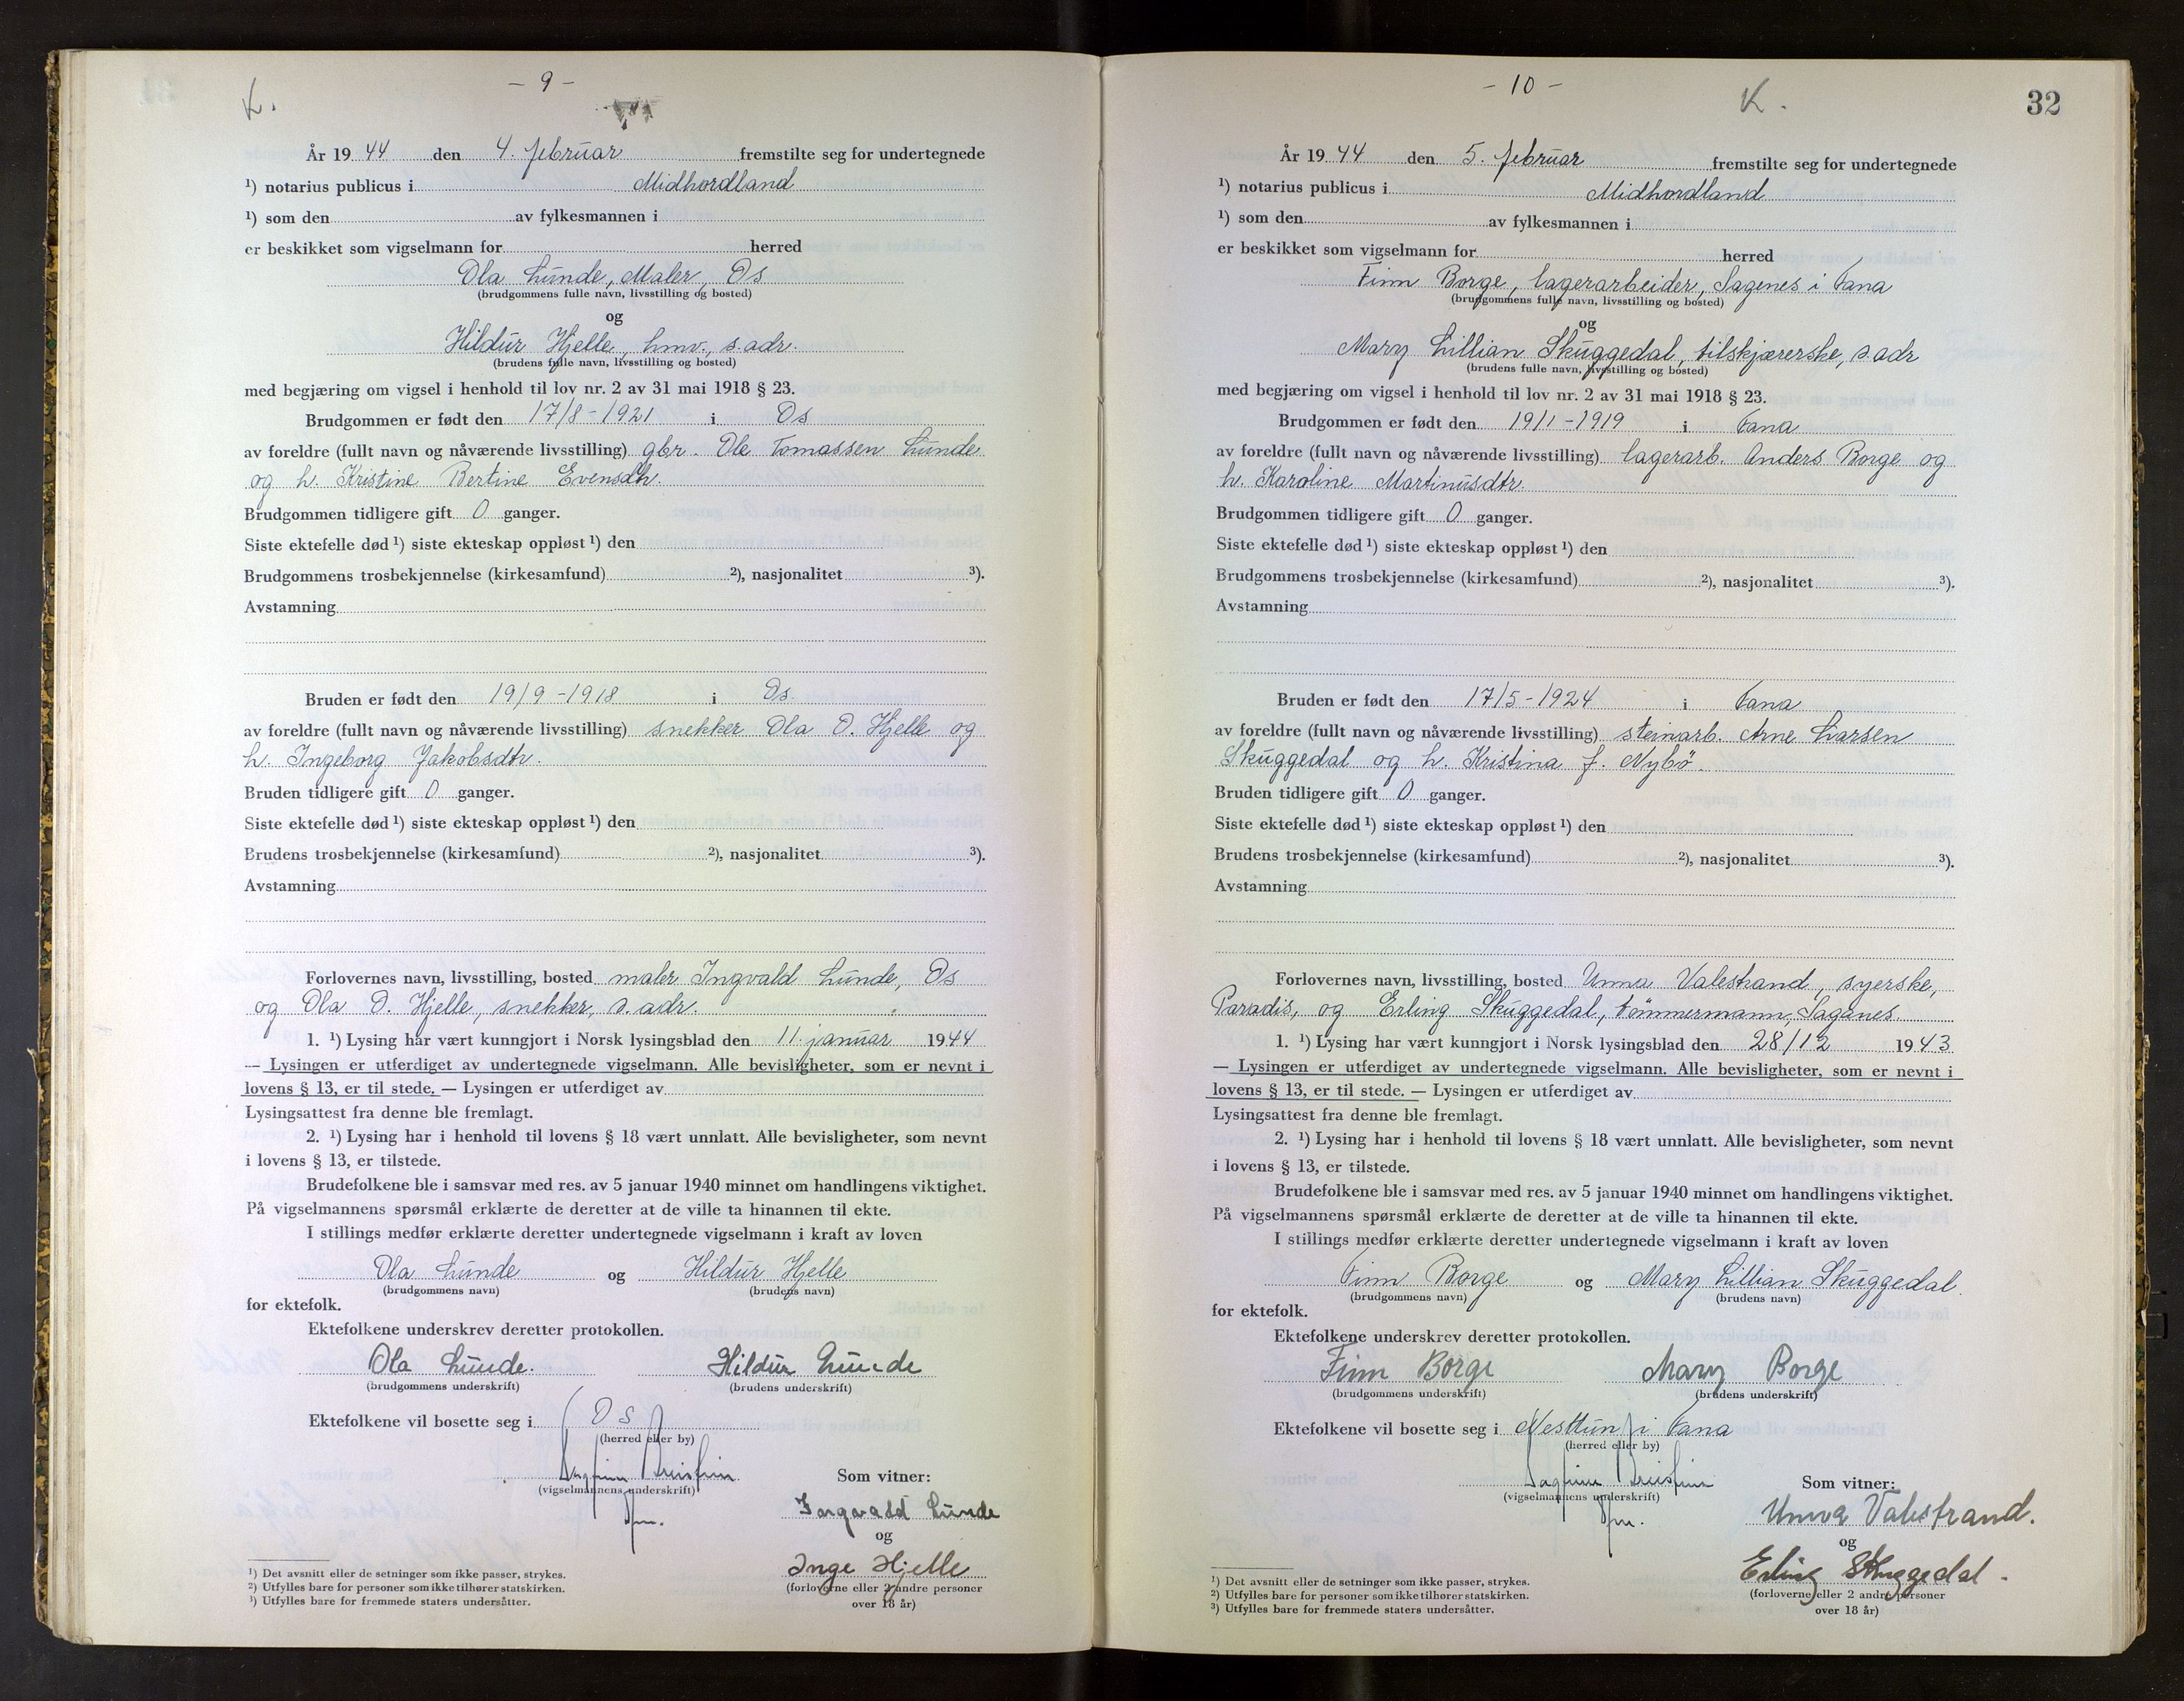 K.
- 9 -
År 19 44 den 4. februar fremstilte seg for undertegnede
¹) notarius publicus i Midhordland
¹) som den av fylkesmannen i
er beskikket som vigselmann for herred
Ola Lunde, Maler, Os
(brudgommens fulle navn, livsstilling og bosted)
og
Hildur Hjelle, hmv., s.adr.
(brudens fulle navn, livsstilling og bosted)
med begjæring om vigsel i henhold til lov nr. 2 av 31 mai 1918 § 23.
Brudgommen er født den 17/8-1921 i Os
av foreldre (fullt navn og nåværende livsstilling) gbr. Ole Tomassen Lunde
og h. Kristine Bertine Evensdtr.
Brudgommen tidligere gift 0 ganger.
Siste ektefelle død ¹) siste ekteskap oppløst ¹) den
Brudgommens trosbekjennelse (kirkesamfund) ²), nasjonalitet ³).
Avstamning
Bruden er født den 19/9-1918 i Os.
av foreldre (fullt navn og nåværende livsstilling) snekker Ola O. Hjelle og
h. Ingeborg Jakobsdtr.
Bruden tidligere gift 0 ganger.
Siste ektefelle død ¹) siste ekteskap oppløst ¹) den
Brudens trosbekjennelse (kirkesamfund) ²), nasjonalitet ³).
Avstamning
Forlovernes navn, livsstilling, bosted maler Ingvald Lunde, Os
og Ola O. Hjelle, snekker, s.adr.
1. ¹) Lysing har vært kunngjort i Norsk lysingsblad den 11. januar 1944
— Lysingen er utferdiget av undertegnede vigselmann. Alle bevisligheter, som er nevnt i
lovens § 13, er til stede. — Lysingen er utferdiget av
Lysingsattest fra denne ble fremlagt.
2. ¹) Lysing har i henhold til lovens § 18 vært unnlatt. Alle bevisligheter, som nevnt
i lovens § 13, er tilstede.
Brudefolkene ble i samsvar med res. av 5 januar 1940 minnet om handlingens viktighet.
På vigselmannens spørsmål erklærte de deretter at de ville ta hinannen til ekte.
I stillings medfør erklærte deretter undertegnede vigselmann i kraft av loven
Ola Lunde og Hildur Hjelle
(brudgommens navn) (brudens navn)
for ektefolk.
Ektefolkene underskrev deretter protokollen.
Ola Lunde. Hildur Lunde
(brudgommens underskrift) (brudens underskrift)
Ektefolkene vil bosette seg i Os
(herred eller by)
(vigselmannens underskrift)
Som vitner:
Ingvald Lunde
og
Inge Hjelle
(forloverne eller 2 andre personer
over 18 år)
¹) Det avsnitt eller de setninger som ikke passer, strykes.
²) Utfylles bare for personer som ikke tilhører statskirken.
³) Utfylles bare for fremmede staters undersåtter.
- 10 -
K.
32
År 19 44 den 5. februar fremstilte seg for undertegnede
¹) notarius publicus i Midhordland
¹) som den av fylkesmannen i
er beskikket som vigselmann for herred
Finn Borge, lagerarbeider, Sagenes i Fana
(brudgommens fulle navn, livsstilling og bosted)
og
Mary Lillian Skuggedal, tilskjærerske, s.adr
(brudens fulle navn, livsstilling og bosted)
med begjæring om vigsel i henhold til lov nr. 2 av 31 mai 1918 § 23.
Brudgommen er født den 19/1-1919 i Fana
av foreldre (fullt navn og nåværende livsstilling) lagerarb. Anders Borge og
h. Karoline Martinusdtr.
Brudgommen tidligere gift 0 ganger.
Siste ektefelle død ¹) siste ekteskap oppløst ¹) den
Brudgommens trosbekjennelse (kirkesamfund) ²), nasjonalitet ³).
Avstamning
Bruden er født den 17/5-1924 i Fana
av foreldre (fullt navn og nåværende livsstilling) steinarb. Arne Larsen
Skuggedal og h. Kristina f. Nybö.
Bruden tidligere gift 0 ganger.
Siste ektefelle død ¹) siste ekteskap oppløst ¹) den
Brudens trosbekjennelse (kirkesamfund) ²), nasjonalitet ³).
Avstamning
Forlovernes navn, livsstilling, bosted Unna Valestrand, syerske,
Paradis, og Erling Skuggedal, tömmermann, Saganes
1. ¹) Lysing har vært kunngjort i Norsk lysingsblad den 28/12 1943
— Lysingen er utferdiget av undertegnede vigselmann. Alle bevisligheter, som er nevnt i
lovens § 13, er til stede. — Lysingen er utferdiget av
Lysingsattest fra denne ble fremlagt.
2. ¹) Lysing har i henhold til lovens § 18 vært unnlatt. Alle bevisligheter, som nevnt
i lovens § 13, er tilstede.
Brudefolkene ble i samsvar med res. av 5 januar 1940 minnet om handlingens viktighet.
På vigselmannens spørsmål erklærte de deretter at de ville ta hinannen til ekte.
I stillings medfør erklærte deretter undertegnede vigselmann i kraft av loven
Finn Borge og Mary Lillian Skuggedal.
(brudgommens navn) (brudens navn)
for ektefolk.
Ektefolkene underskrev deretter protokollen.
Finn Borge Mary Borge
(brudgommens underskrift) (brudens underskrift)
Ektefolkene vil bosette seg i Nesttun i Fana
(herred eller by)
(vigselmannens underskrift)
Som vitner:
Unna Valestrand.
og
Erling Skuggedal.
(forloverne eller 2 andre personer
over 18 år)
¹) Det avsnitt eller de setninger som ikke passer, strykes.
²) Utfylles bare for personer som ikke tilhører statskirken.
³) Utfylles bare for fremmede staters undersåtter.